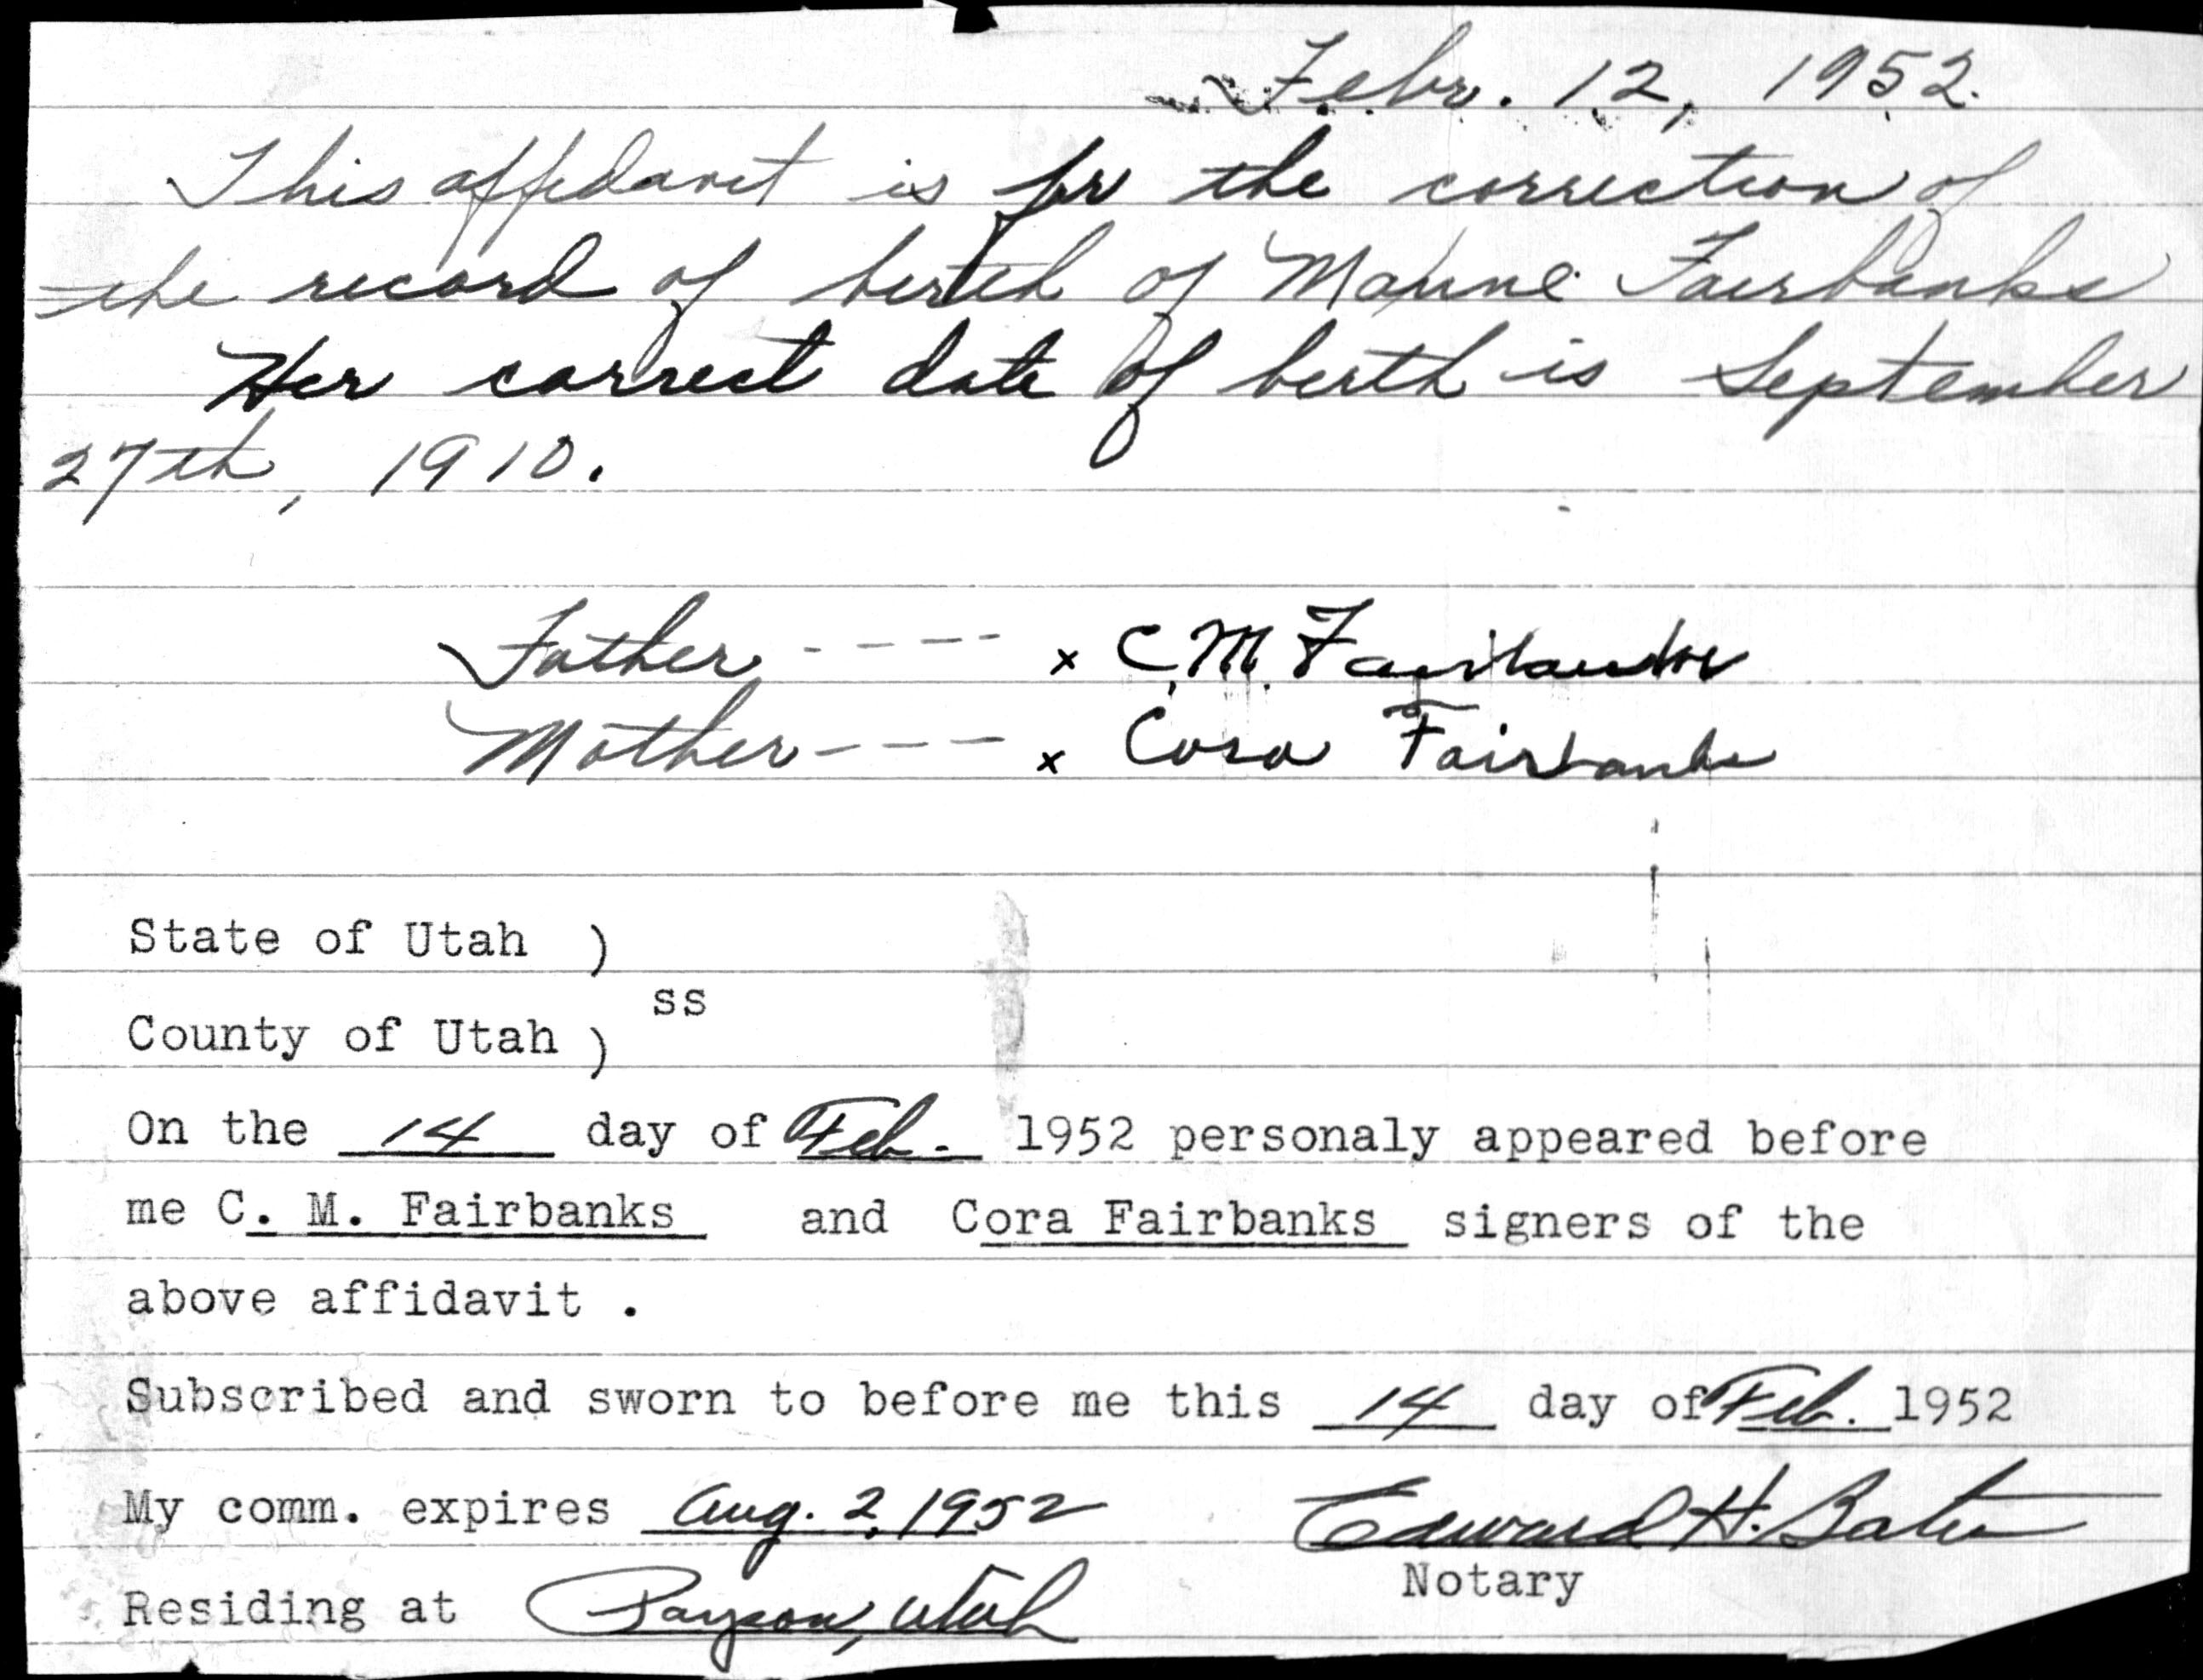 Febr. 12, 1952.
This affidavit is for the correction of
the record of birth of Maxine Fairbanks
Her correct date of birth is September
27th, 1910.
Father ---- x C.M. Fairbanks
Mother --- x Cora Fairbanks
State of Utah )
ss
County of Utah )
On the 14 day of Feb. 1952 personaly appeared before
me C. M. Fairbanks and Cora Fairbanks signers of the
above affidavit .
Subscribed and sworn to before me this 14 day of Feb. 1952
My comm. expires Aug. 2, 1952 Edward H. Bates
Notary
Residing at Payson, Utah